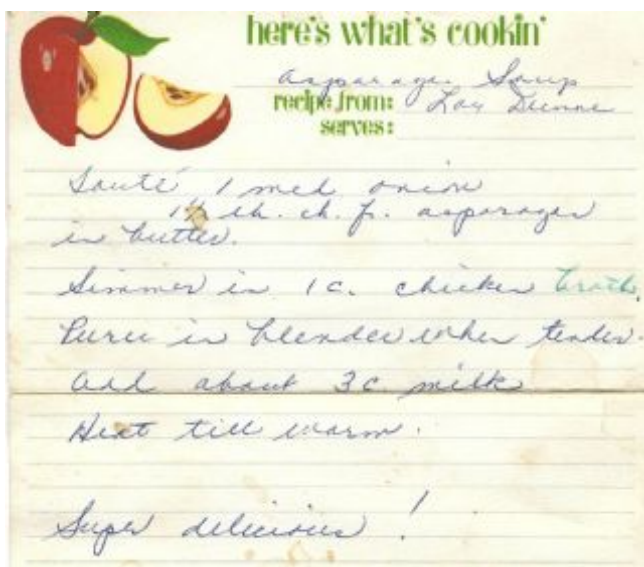 here's what's cookin'
Asparagus Soup
recipe from: Lay
serves:
Sauté 1 med onion
lb. ch. f. asparagus
in butter.
Simmer in 1 c. chicken broth.
Puree in blender when tender.
Add about 3c. milk
Heat till warm.
Super delicious!